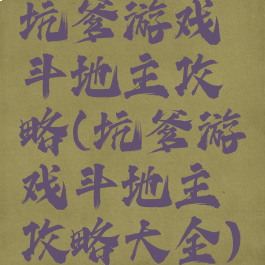 坑爹游戏
斗地主攻
略(坑爹游
戏斗地主
攻略大全)